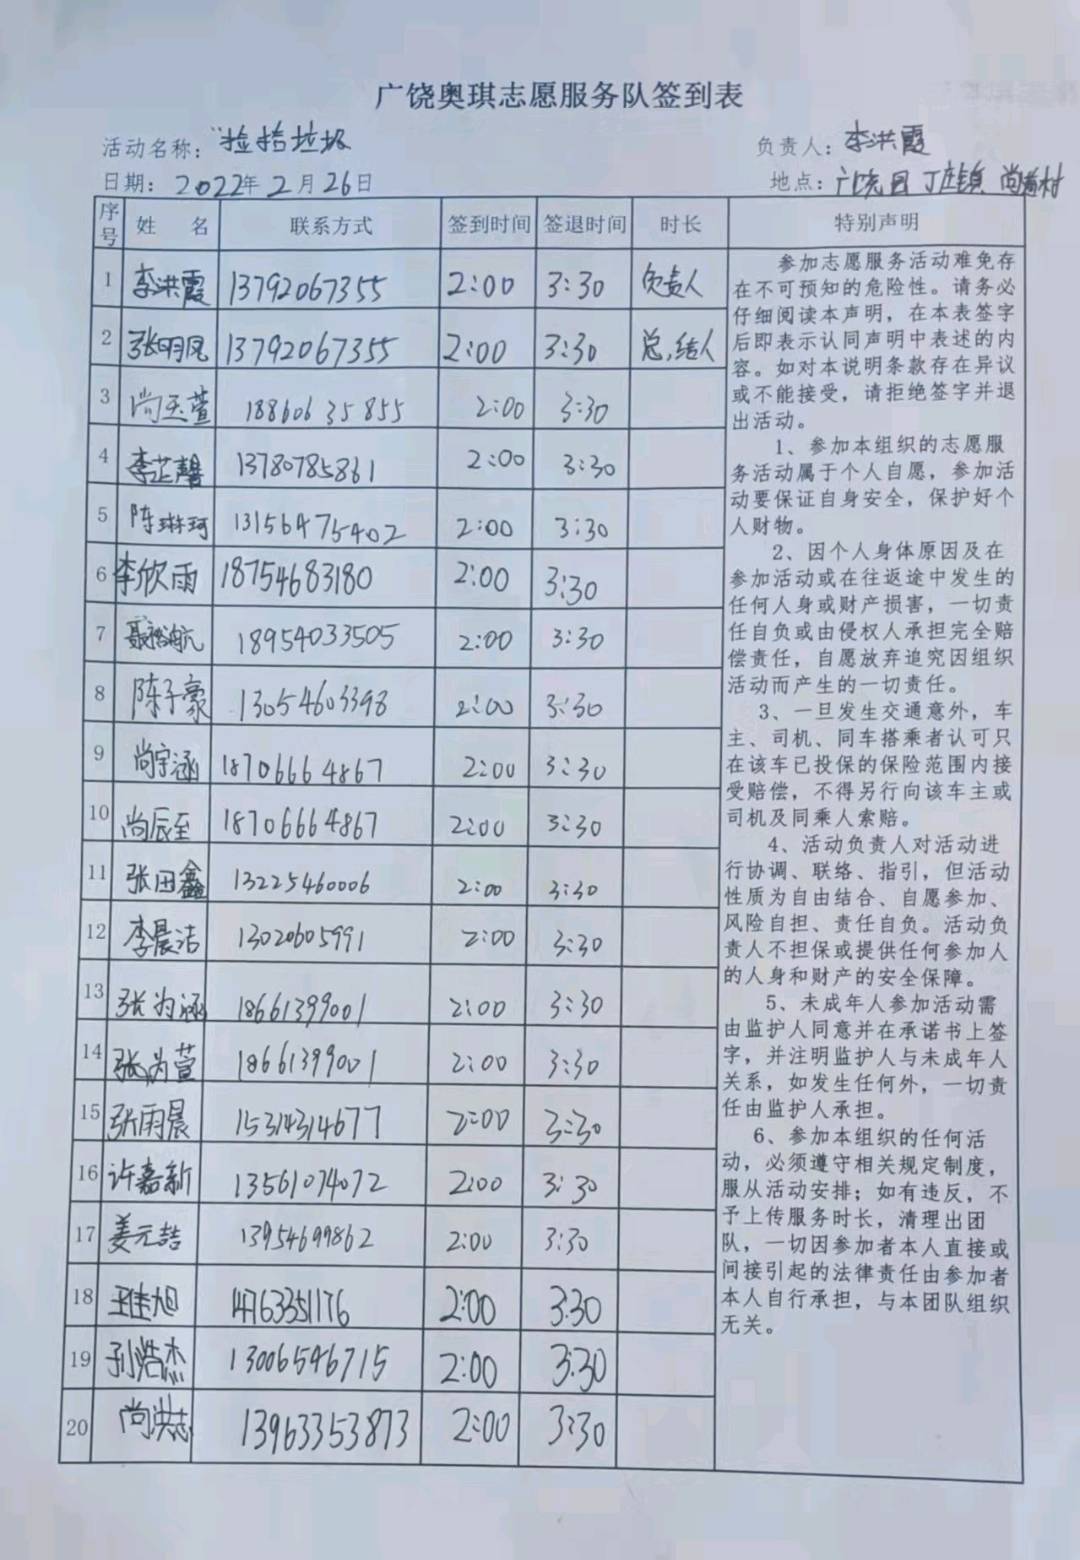 广饶奥琪志愿服务队签到表
活动名称：“捡拾垃圾 负责人：李洪霞
日期：2022年2月26日 地点：广饶县丁庄镇尚道村
序号 姓名 联系方式 签到时间 签退时间 时长 特别声明
1 李洪霞 13792067355 2:00 3:30 负责人
2 张明凤 13792067355 2:00 3:30 总结人
3 尚玉萱 18860635855 2:00 3:30
4 李芷馨 13780785861 2:00 3:30
5 陈琳珂 13156475402 2:00 3:30
6 李欣雨 18754683180 2:00 3:30
7 18954033505 2:00 3:30
8 陈子豪 13054603398 2:00 3:30
9 尚宇涵 18706664867 2:00 3:30
10 尚辰至 18706664867 2:00 3:30
11 张田鑫 13225460006 2:00 3:30
12 李晨洁 13020605991 2:00 3:30
13 张为涵 18661399001 2:00 3:30
14 张芮萱 18661399001 2:00 3:30
15 张雨晨 15314314677 2:00 3:30
16 许嘉新 13561074072 2:00 3:30
17 姜元喆 13954699862 2:00 3:30
18 王佳旭 14763351176 2:00 3:30
19 孙浩杰 13006546715 2:00 3:30
20 尚洪志 13963353873 2:00 3:30
参加志愿服务活动难免存
在不可预知的危险性。请务必
仔细阅读本声明，在本表签字
后即表示认同声明中表述的内
容。如对本说明条款存在异议
或不能接受，请拒绝签字并退
出活动。
1、参加本组织的志愿服
务活动属于个人自愿，参加活
动要保证自身安全，保护好个
人财物。
2、因个人身体原因及在
参加活动或在往返途中发生的
任何人身或财产损害，一切责
任自负或由侵权人承担完全赔
偿责任，自愿放弃追究因组织
活动而产生的一切责任。
3、一旦发生交通意外，车
主、司机、同车搭乘者认可只
在该车已投保的保险范围内接
受赔偿，不得另行向该车主或
司机及同乘人索赔。
4、活动负责人对活动进
行协调、联络、指引，但活动
性质为自由结合、自愿参加、
风险自担、责任自负。活动负
责人不担保或提供任何参加人
的人身和财产的安全保障。
5、未成年人参加活动需
由监护人同意并在承诺书上签
字，并注明监护人与未成年人
关系，如发生任何外，一切责
任由监护人承担。
6、参加本组织的任何活
动，必须遵守相关规定制度，
服从活动安排；如有违反，不
予上传服务时长，清理出团
队，一切因参加者本人直接或
间接引起的法律责任由参加者
本人自行承担，与本团队组织
无关。